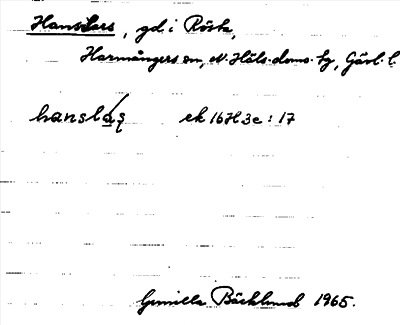 HansLars, gd. i Rösta,
Harmångers sn, N. Häls. doms. hg, Gävl. l.
hanslas̨ ek 16H3e: 17
Gunilla Bäcklund 1965.